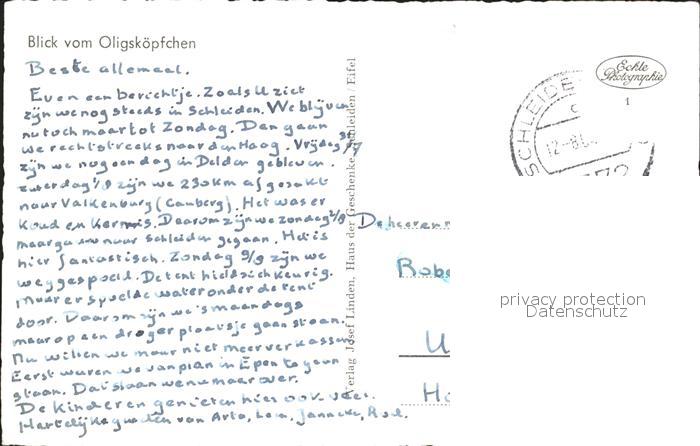 Blick vom Oligsköpfchen
Beste allemaal.
Even een berichtje. Zoals U ziet
zijn we nog steeds in Schleiden. We blijven
nu toch maar tot Zondag. Dan gaan
we rechtstreeks naar den Haag. Vrijdag 31/7
zijn we nog een dag in Delden gebleven.
zaterdag 1/8 zijn we 230 km afgezakt
naar Valkenburg (Cauberg). Het was er
koud en kermis. Daarom zijn we zondag 2/8
maar gauw naar Schleiden gegaan. Het is
hier fantastisch. Zondag 9/8 zijn we
weggespoeld. De tent hield zich keurig.
Maar er spoelde water onder de tent
door. Daarom zijn we 's maandags
maar op een droger plaatsje gaan staan.
Nu willen we maar niet meer verkassen
Eerst waren we van plan in Epen te gaan
staan. Dat slaan we nu maar over.
De kinderen genieten hier ook veel.
Hartelijke groeten van Arto, Janneke,
Verlag Josef Linden, Haus der Geschenke, Schleiden / Eifel
Echte
Photographie
1
SCHLEIDE
12-8
De heeren
Robe
U
Ha
privacy protection
Datenschutz